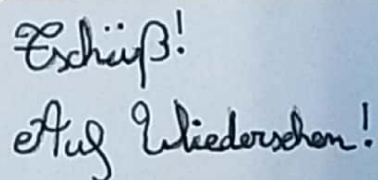 Tschüß!
Auf Wiedersehen!